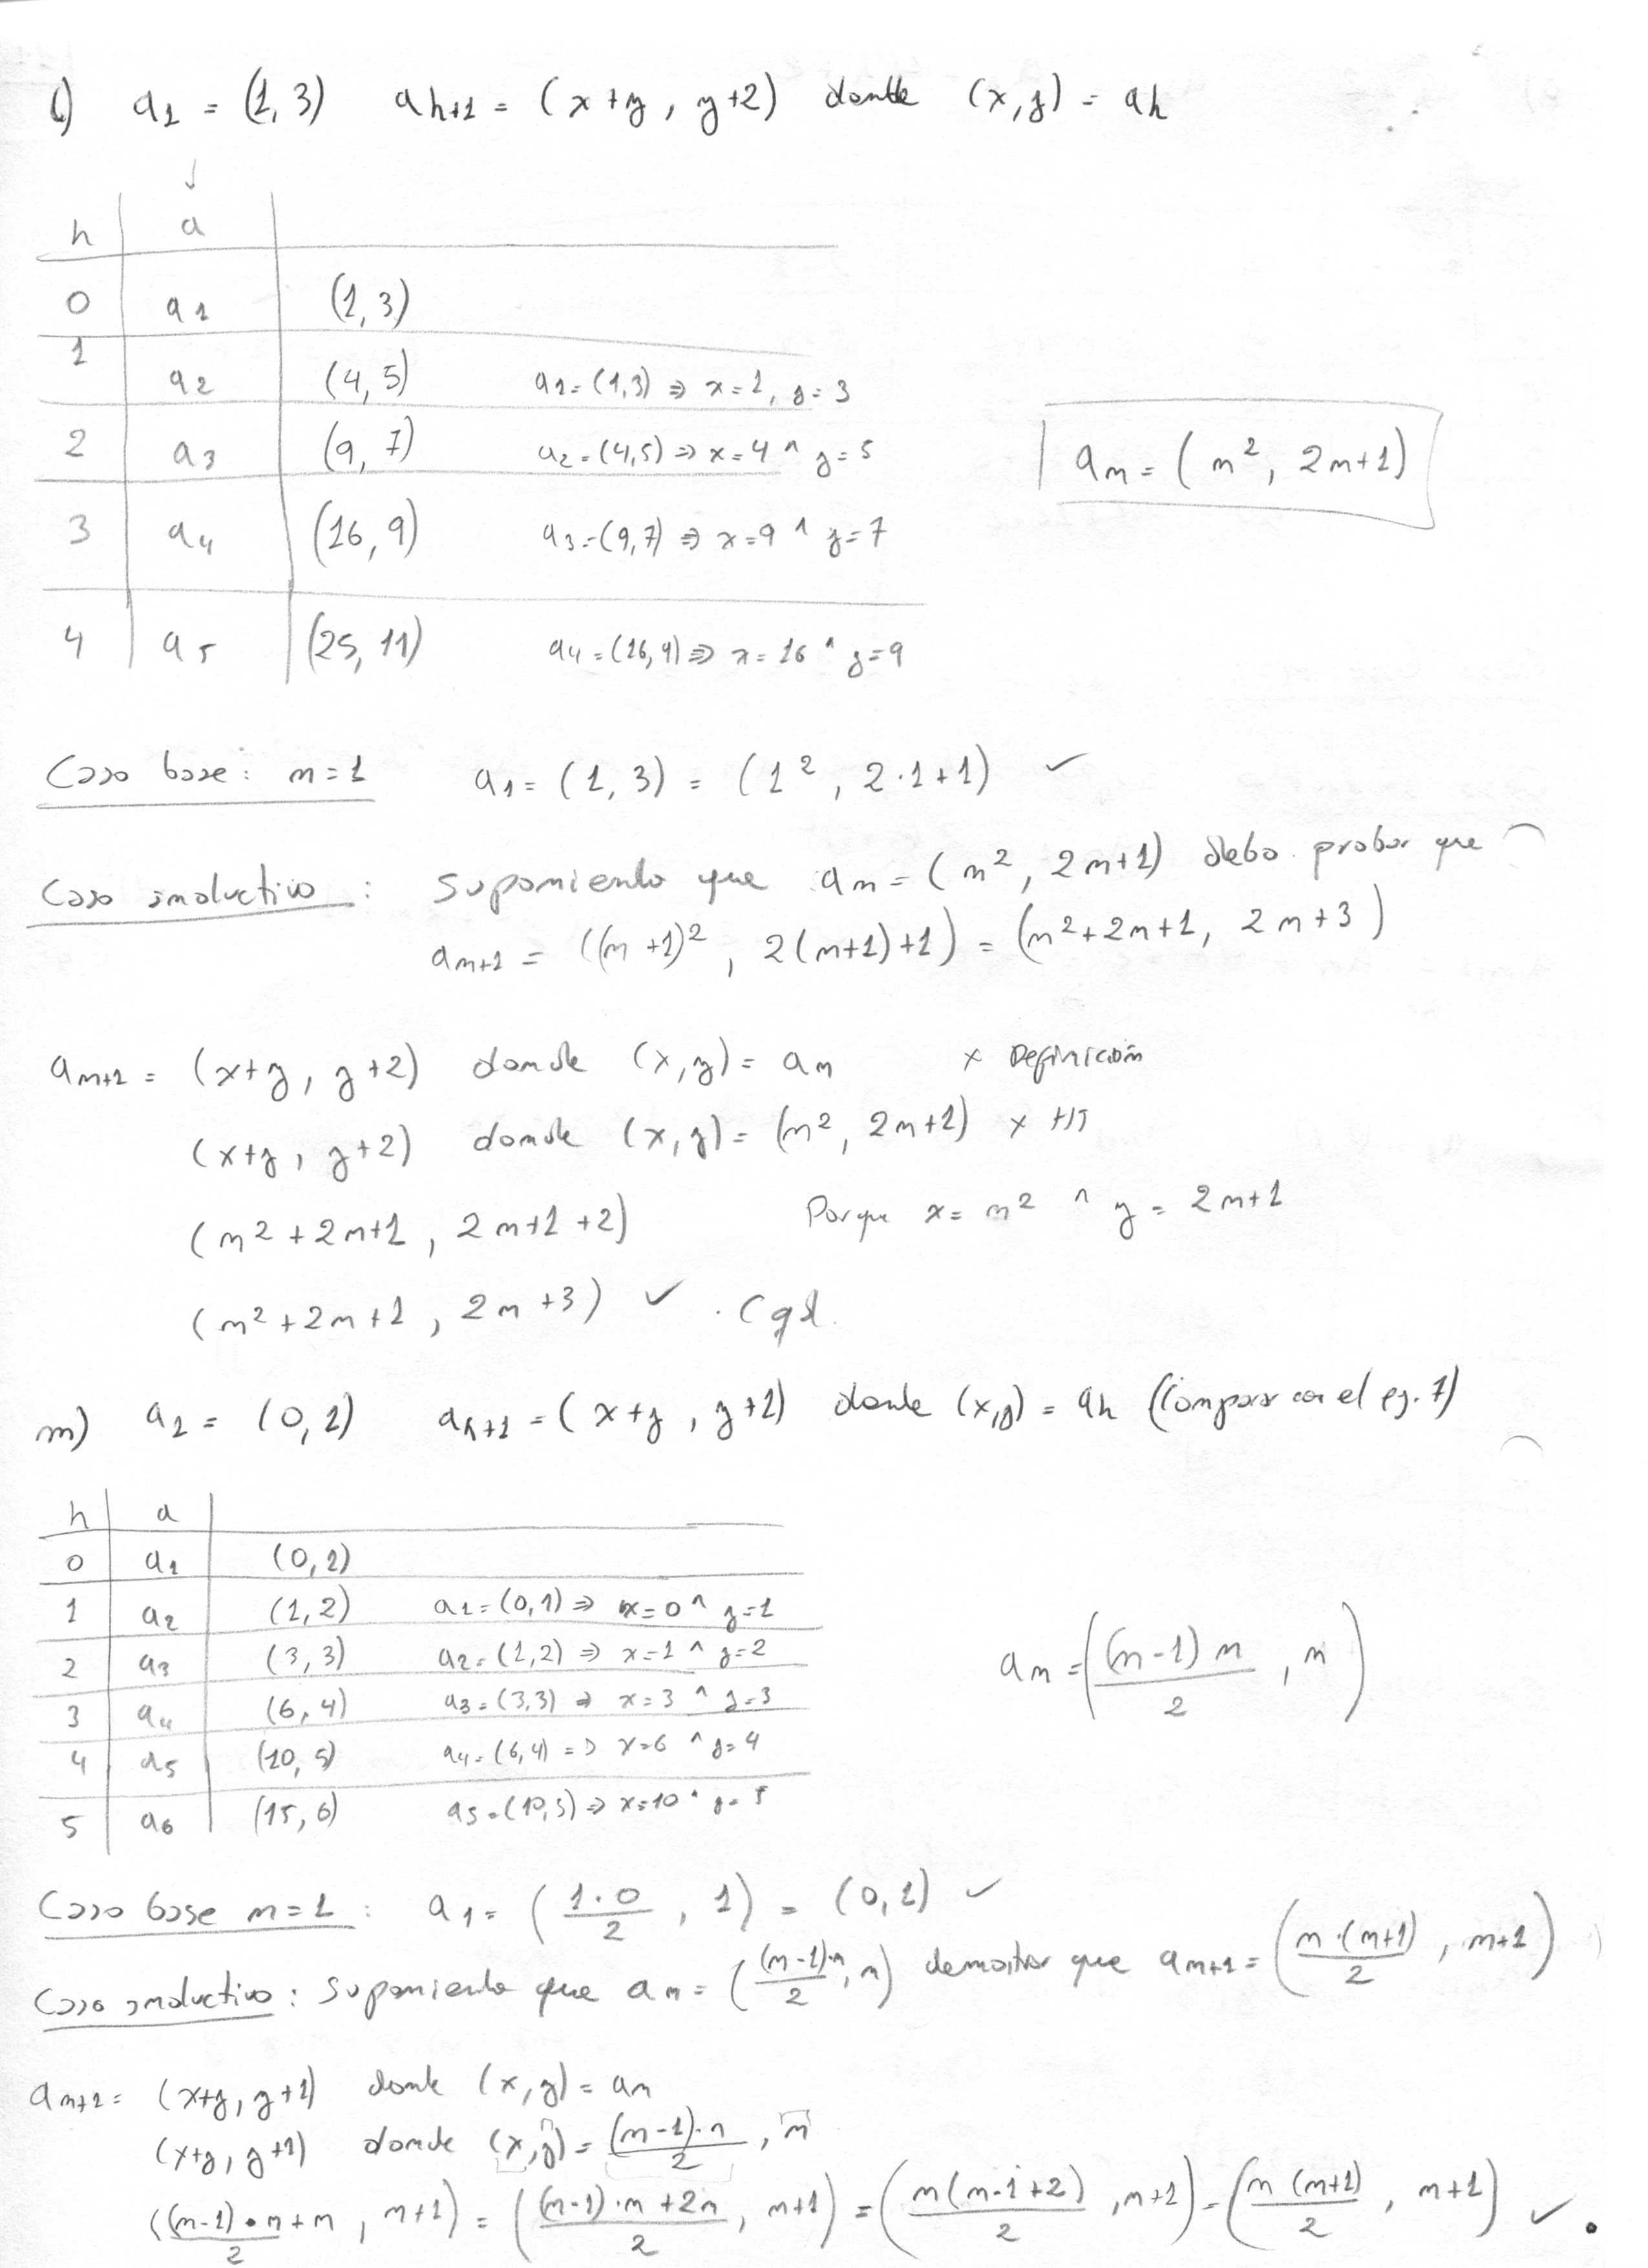 l) a1 = (1, 3) ah+1 = (x+y, y+2) donde (x,y) = ah
h a
0 a1 (1,3)
1 a2 (4,5) a1=(1,3) ⇒ x=1, y=3
2 a3 (9,7) a2=(4,5) ⇒ x=4 ^ y=5
3 a4 (16,9) a3=(9,7) ⇒ x=9 ^ y=7
4 a5 (25,11) a4=(16,9) ⇒ x=16 ^ y=9
an = (n², 2n+1)
Caso base: n=1 a1=(1,3) = (1², 2·1+1) ✓
Caso inductivo: suponiendo que an=(n², 2n+1) debo probar que
an+1 = ((n+1)², 2(n+1)+1) = (n²+2n+1, 2n+3)
an+1 = (x+y, y+2) donde (x,y) = an x Definición
(x+y, y+2) donde (x,y) = (n², 2n+1) x HI
(n²+2n+1, 2n+1+2) Porque x=n² ^ y=2n+1
(n²+2n+1, 2n+3) ✓ . Cqd.
m) a1 = (0,1) ah+1 = (x+y, y+1) donde (x,y) = ah (Comparar con el ej. 1)
h a
0 a1 (0,1)
1 a2 (1,2) a1=(0,1) ⇒ x=0 ^ y=1
2 a3 (3,3) a2=(1,2) ⇒ x=1 ^ y=2
3 a4 (6,4) a3=(3,3) ⇒ x=3 ^ y=3
4 a5 (10,5) a4=(6,4) => x=6 ^ y=4
5 a6 (15,6) a5=(10,5) ⇒ x=10 ^ y=5
an = ((n-1)n/2, n)
Caso base n=1: a1 = (1·0/2, 1) = (0,1) ✓
Caso inductivo: Suponiendo que an = ((n-1)·n/2, n) demostrar que an+1 = (n·(n+1)/2, n+1)
an+1 = (x+y, y+1) donde (x,y) = an
(x+y, y+1) donde (x,y) = (n-1)·n/2, n
((n-1)·n/2 + n, n+1) = ((n-1)·n+2n/2, n+1) = (n(n-1+2)/2, n+1) = (n(n+1)/2, n+1) ✓.